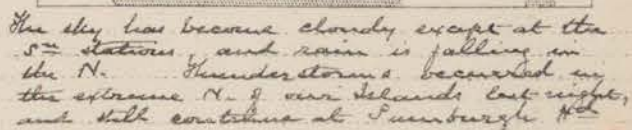 The sky has become cloudy except at the
Sn stations, and rain is falling in
the N. Thunderstorms occurred in
the extreme N. of our Islands last night,
and still continue at Sumburgh Hd